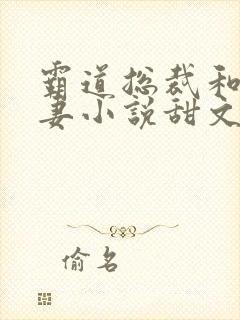 霸道总裁和
妻小説甜文
偷名